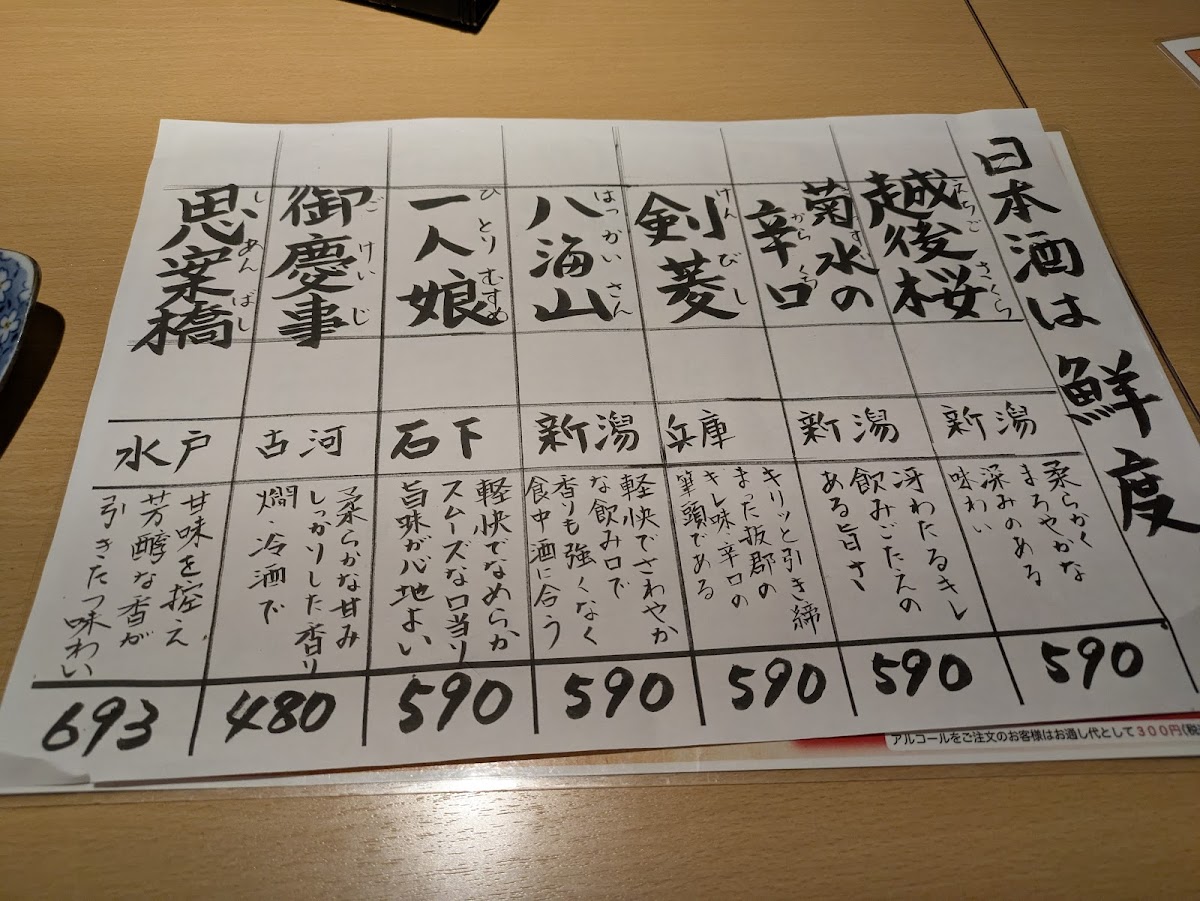 日本酒は 鮮度
越後桜
えちご さくら
新潟
柔らかく
まろやかな
深みのある
味わい
590
菊水の
辛口
から くち
新潟
冴わたるキレ
飲みごたえの
ある旨さ
590
剣菱
けん びし
兵庫
キリッと引き締
まった抜群の
キレ味・辛口の
筆頭である
590
八海山
はっかい さん
新潟
軽快でさわやか
な飲み口で
香りも強くなく
食中酒に合う
590
一人娘
ひとり むすめ
石下
軽快でなめらか
スムーズな口当り
旨味が心地よい
590
御慶事
ご けい じ
古河
柔らかな甘み
しっかりした香り
燗・冷酒で
480
思案橋
し あん ばし
水戸
甘味を控え
芳醇な香が
引きたつ味わい
693
アルコールをご注文のお客様はお通し代として300円(税